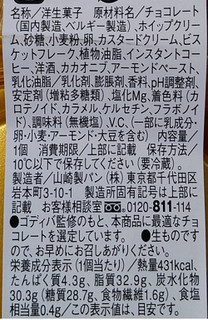 名称／洋生菓子　原材料名／チョコレート
(国内製造、ベルギー製造)、ホイップクリー
ム、砂糖、小麦粉、卵、カスタードクリーム、ビス
ケットフレーク、植物油脂、インスタントコー
ヒー、洋酒、カカオニブ、アーモンドペースト、
乳化油脂／乳化剤、膨脹剤、香料、pH調整剤、
安定剤(増粘多糖類)、塩化Mg、着色料(カ
ロテノイド、カラメル、ケルセチン、フラボノイ
ド)、調味料(無機塩)、V.C、(一部に乳成分・
卵・小麦・アーモンド・大豆を含む)　内容量／
1個　消費期限／上部に記載　保存方法／
10℃以下で保存してください(要冷蔵)。
製造者／山崎製パン(株)東京都千代田区
岩本町3-10-1　製造所固有記号は上部に
記載　お客様相談室 0120-811-114
●ゴディバ監修のもと、本商品に最適なチョ
コレートを選定しています。●生ものですの
で、お早めにお召しあがりください。
栄養成分表示(1個当たり)／熱量431kcal、
たんぱく質4.3g、脂質32.9g、炭水化物
30.3g(糖質28.7g、食物繊維1.6g)、食塩
相当量0.4g／この表示値は、目安です。